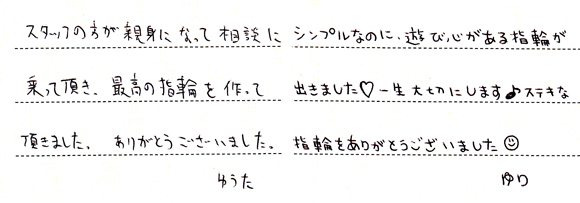 スタッフの方が親身になって相談に
乗って頂き、最高の指輪を作って
頂きました。ありがとうございました。
ゆうた
シンプルなのに、遊び心がある指輪が
出きました♡一生大切にします♪ステキな
指輪をありがとうございました☺
ゆり